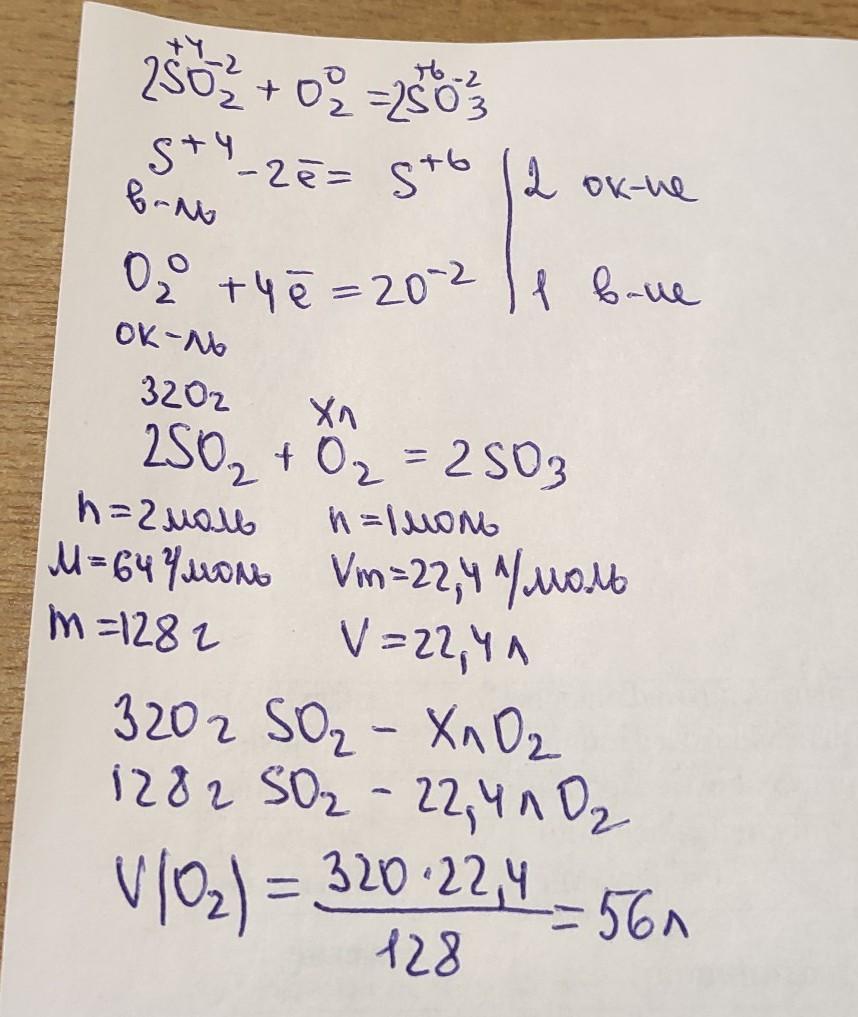 2S⁺⁴O₂⁻² + O₂⁰ = 2S⁺⁶O₃⁻²
S⁺⁴ - 2ē = S⁺⁶ | 2 ок-ие
в-ль
O₂⁰ + 4ē = 2O⁻² | 1 в-ие
ок-ль
320г хл
2SO₂ + O₂ = 2SO₃
n=2моль n=1моль
M=64г/моль Vm=22,4 л/моль
m=128г V=22,4л
320г SO₂ - Xл O₂
128г SO₂ - 22,4л O₂
V(O₂) = 320·22,4 / 128 = 56л